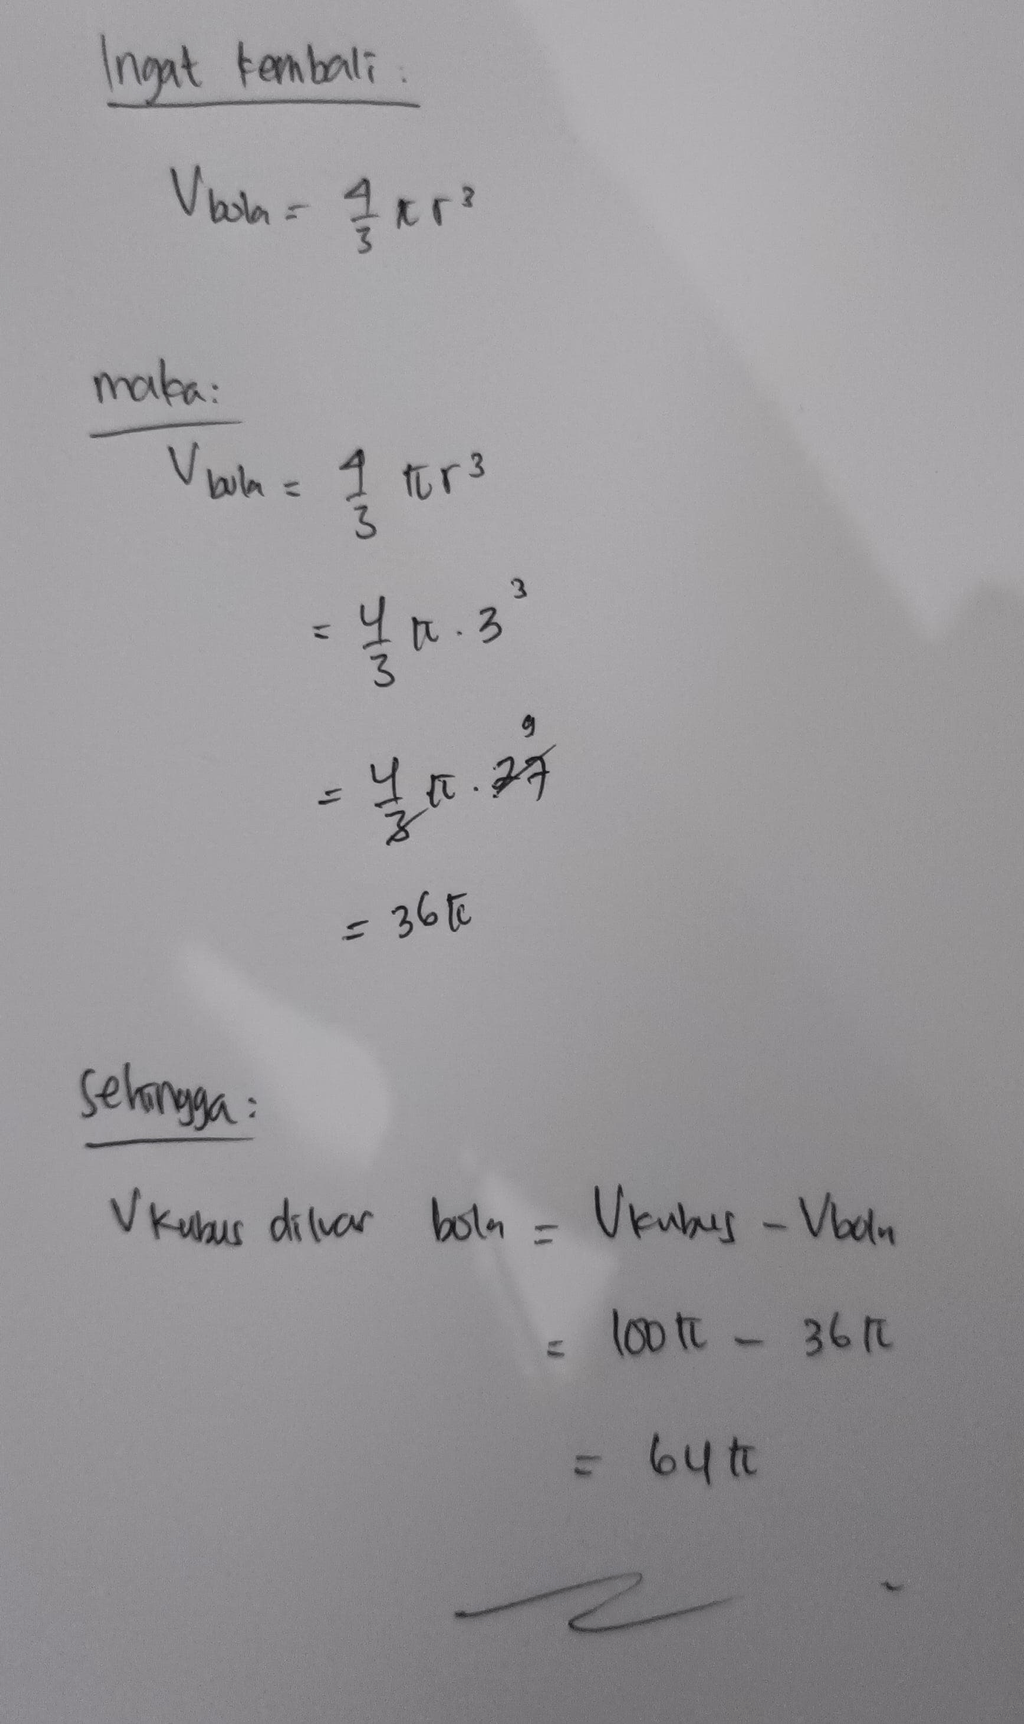 Ingat kembali:
V bola = 4/3 π r³
maka:
V bola = 4/3 π r³
= 4/3 π . 3³
= 4/3 π . 27 9
= 36π
Sehingga:
V kubus diluar bola = V kubus - V bola
= 100π - 36π
= 64π